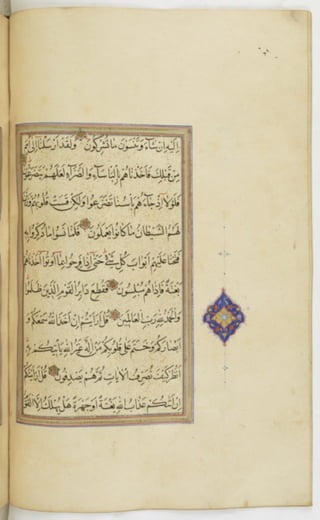 إليه إن شاء وتنسون ما تشركون ولقد أرسلنا إلى أمم
من قبلك فأخذناهم بالبأساء والضراء لعلهم يتضرعون
فلولا إذ جاءهم بأسنا تضرعوا ولكن قست قلوبهم وزين
لهم الشيطان ما كانوا يعملون فلما نسوا ما ذكروا به
فتحنا عليهم أبواب كل شيء حتى إذا فرحوا بما أوتوا أخذناهم
بغتة فإذا هم مبلسون فقطع دابر القوم الذين ظلموا
والحمد لله رب العالمين قل أرأيتم إن أخذ الله سمعكم و
أبصاركم وختم على قلوبكم من إله غير الله يأتيكم به
انظر كيف نصرف الآيات ثم هم يصدفون قل أرأيتكم
إن أتاكم عذاب الله بغتة أو جهرة هل يهلك إلا القوم